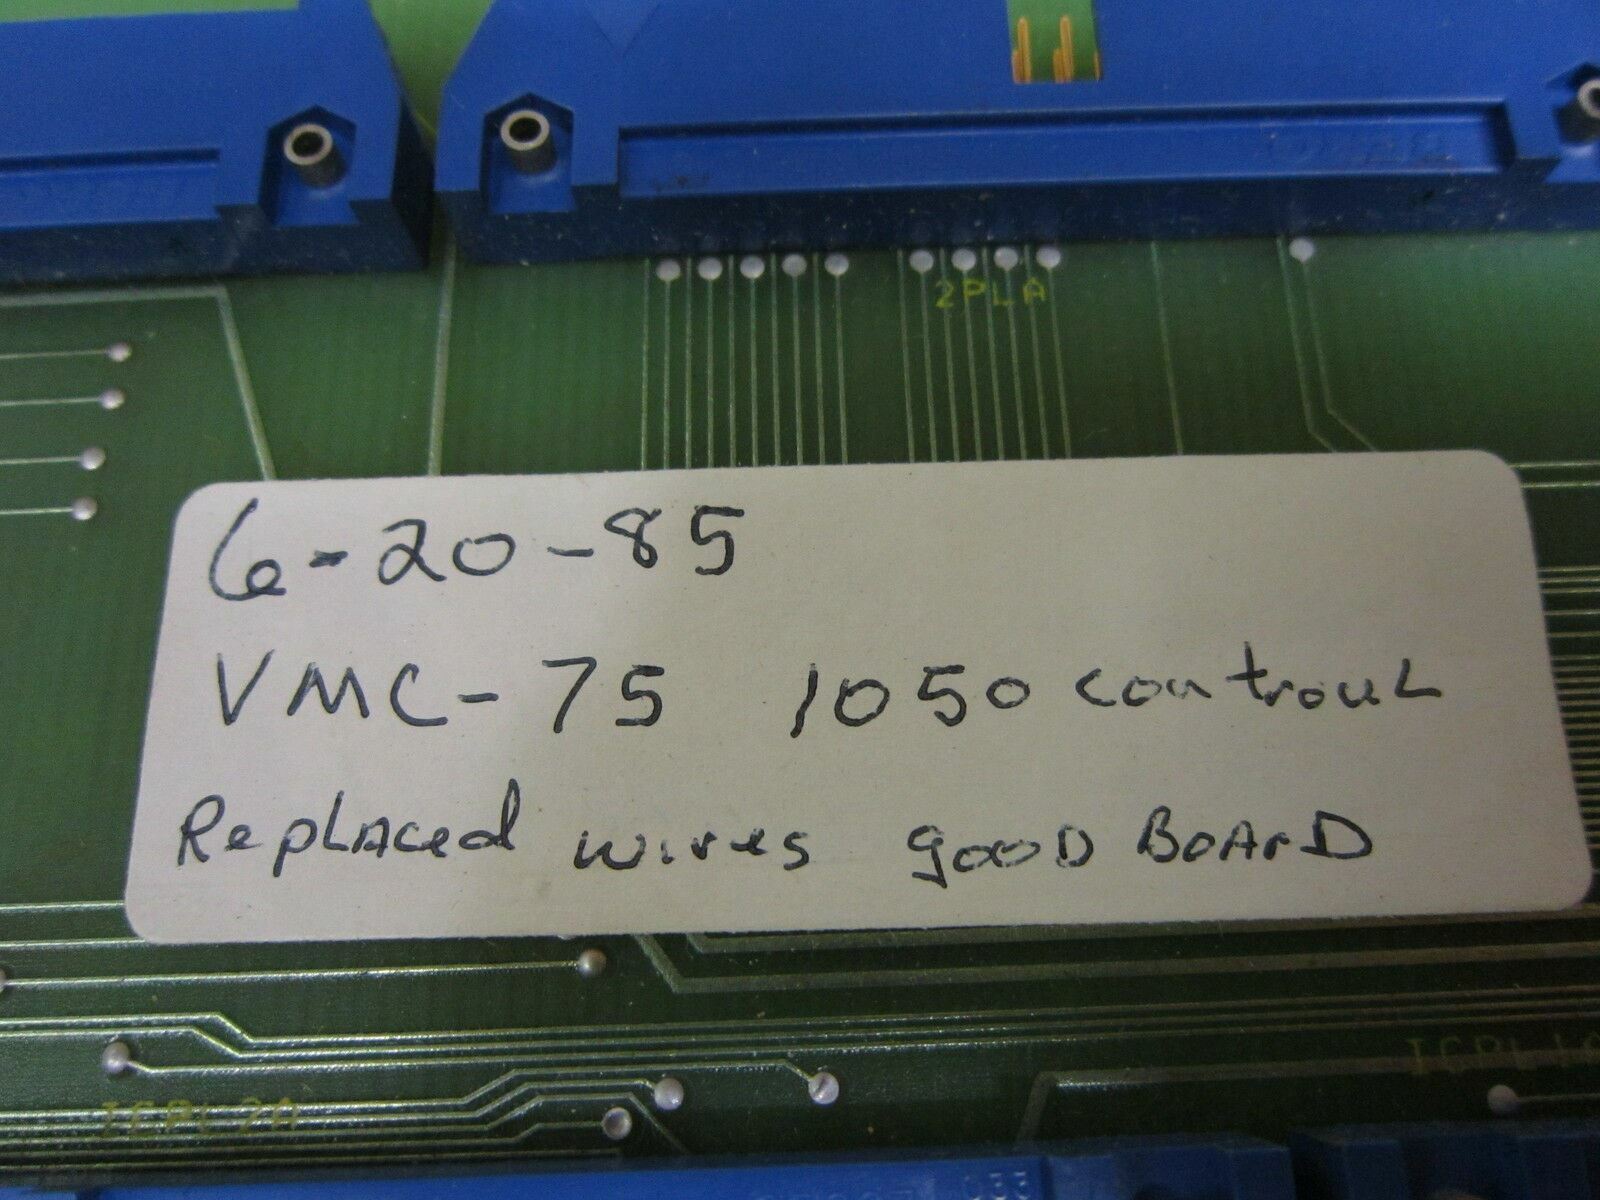 2PLA
6-20-85
VMC-75 1050 controuL
RepLAced wires gooD BoArD